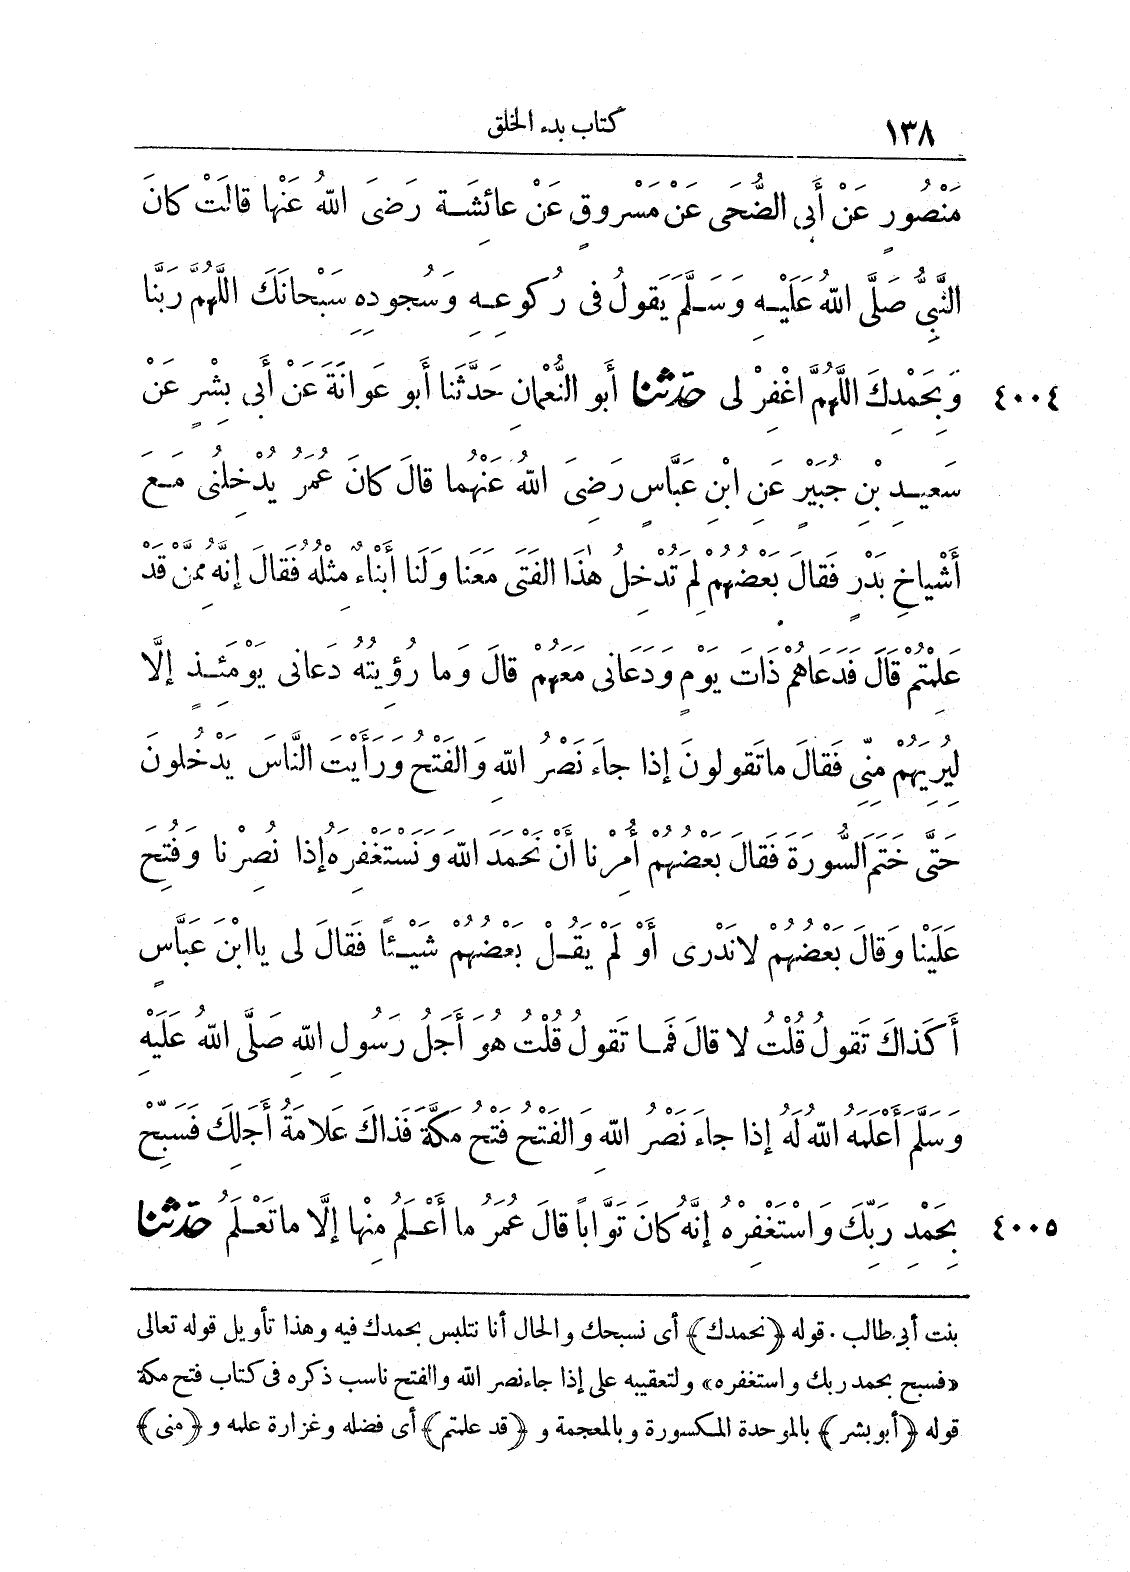 ١٣٨ كتاب بدء الخلق
مَنْصُورٍ عَنْ أَبِى الضُّحَى عَنْ مَسْرُوقٍ عَنْ عائِشَـةَ رَضِىَ اللهُ عَنْها قالَتْ كانَ
النَّبِىُّ صَلَّى اللهُ عَلَيْـهِ وَسَـلَّمَ يَقولُ فى رُكوعِـهِ وَسُجودِهِ سُبْحانَكَ اللَّهُمَّ رَبَّنا
٤٠٠٤ وَبِحَمْدِكَ اللَّهُمَّ اغْفِرْ لى حَدَّثَنَا أَبو النُّعْمانِ حَدَّثَنا أَبو عَوانَةَ عَنْ أَبى بِشْرٍ عَنْ
سَعيـدِ بْنِ جُبَيْرٍ عَنِ ابْنِ عَبَّاسٍ رَضِىَ اللهُ عَنْهُما قالَ كانَ عُمَرُ يُدْخِلُنى مَـعَ
أَشْياخِ بَدْرٍ فَقالَ بَعْضُهُمْ لِمَ تُدْخِلُ هٰذا الفَتَى مَعَنا وَلَنا أَبْناءٌ مِثْلُهُ فَقالَ إِنَّهُ مِمَّنْ قَدْ
عَلِمْتُمْ قالَ فَدَعاهُمْ ذاتَ يَوْمٍ وَدَعانى مَعَهُمْ قالَ وَما رُؤِيتُهُ دَعانى يَوْمَئِـذٍ إِلَّا
لِيُرِيَهُمْ مِنِّى فَقالَ ماتَقولونَ إِذا جاءَ نَصْرُ اللهِ وَالفَتْحُ وَرَأَيْتَ النَّاسَ يَدْخُلونَ
حَتَّى خَتَمَ السُّورَةَ فَقالَ بَعْضُهُمْ أُمِرْنا أَنْ نَحْمَدَ اللهَ وَنَسْتَغْفِرَهُ إِذا نُصِرْنا وَفُتِحَ
عَلَيْنا وَقالَ بَعْضُهُمْ لانَدْرى أَوْ لَمْ يَقُـلْ بَعْضُهُمْ شَيْـئاً فَقالَ لى ياابْنَ عَبَّاسٍ
أَكَذاكَ تَقولُ قُلْتُ لا قالَ فَمـا تَقولُ قُلْتُ هُوَ أَجَلُ رَسُولِ اللهِ صَلَّى اللهُ عَلَيْهِ
وَسَلَّمَ أَعْلَمَهُ اللهُ لَهُ إِذا جاءَ نَصْرُ اللهِ وَالفَتْحُ فَتْحُ مَكَّةَ فَذاكَ عَلامَةُ أَجَلِكَ فَسَبِّحْ
٤٠٠٥ بِحَمْدِ رَبِّكَ وَاسْتَغْفِرْهُ إِنَّهُ كانَ تَوَّاباً قالَ عُمَرُ ما أَعْـلَمُ مِنْها إِلَّا ماتَعْـلَمُ حَدَّثَنَا
بنت أبى طالب. قوله ﴿نحمدك﴾ أى نسبحك والحال أنا نتلبس بحمدك فيه وهذا تأويل قوله تعالى
«فسبح بحمد ربك واستغفره» ولتعقيبه على إذا جاء نصر الله والفتح ناسب ذكره فى كتاب فتح مكة
قوله ﴿أبو بشر﴾ بالموحدة المـكسورة وبالمعجمة و﴿قد علمتم﴾ أى فضله وغزارة علمه و﴿منى﴾